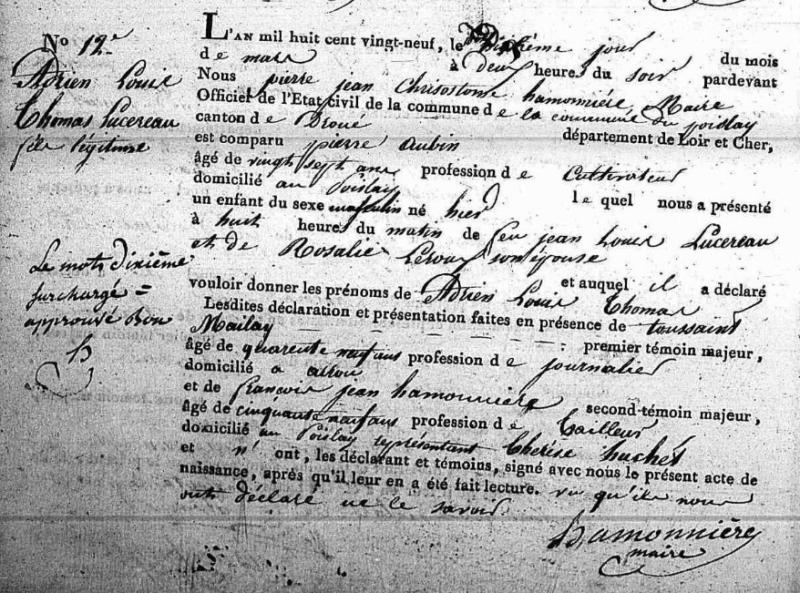 No 12e
Adrien Louis
Thomas Lucereau
fils légitime
L'AN mil huit cent vingt-neuf, le dixième jour du mois
de mars à deux heures du soir pardevant
Nous pierre jean Chrisostome hamonnière Maire
Officier de l'Etat civil de la commune de la commune du poislay
canton de Droué département de Loir et Cher,
est comparu pierre aubin
âgé de vingt sept ans profession de Cultivateur
domicilié au poislay le quel nous a présenté
un enfant du sexe masculin né hier
à huit heures du matin de feu jean Louis Lucereau
et de Rosalie Leroux son épouse
et auquel il a déclaré
vouloir donner les prénoms de Adrien Louis Thomas
Lesdites déclaration et présentation faites en présence de toussaint
premier témoin majeur,
âgé de quarente neuf ans profession de journalier
domicilié a arrou
et de françois jean hamonnière second-témoin majeur,
âgé de cinquante neuf ans profession de tailleur
domicilié au poislay représentant Therèse huchet
et n' ont, les déclarant et témoins, signé avec nous le présent acte de
naissance, après qu'il leur en a été fait lecture. vu qu'ils nous
ont déclaré ne le savoir.
Le mots dixième
surchargé =
approuvé Bon
h
hamonnière
maire